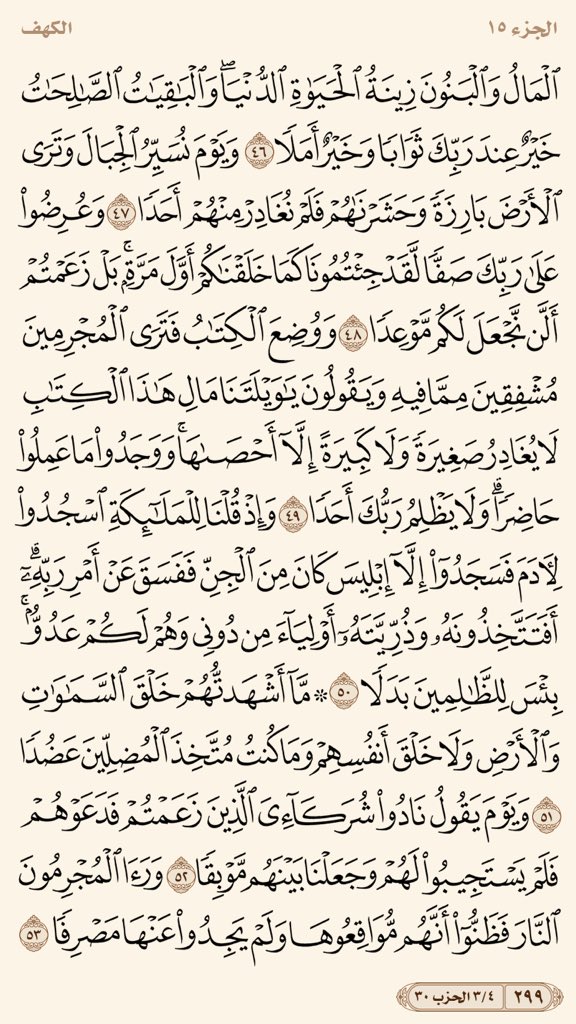 الجزء ١٥
الكهف
ٱلْمَالُ وَٱلْبَنُونَ زِينَةُ ٱلْحَيَوٰةِ ٱلدُّنْيَاۖ وَٱلْبَٰقِيَٰتُ ٱلصَّٰلِحَٰتُ
خَيْرٌ عِندَ رَبِّكَ ثَوَابًا وَخَيْرٌ أَمَلًا ٤٦ وَيَوْمَ نُسَيِّرُ ٱلْجِبَالَ وَتَرَى
ٱلْأَرْضَ بَارِزَةً وَحَشَرْنَٰهُمْ فَلَمْ نُغَادِرْ مِنْهُمْ أَحَدًا ٤٧ وَعُرِضُوا۟
عَلَىٰ رَبِّكَ صَفًّا لَّقَدْ جِئْتُمُونَا كَمَا خَلَقْنَٰكُمْ أَوَّلَ مَرَّةٍۭۚ بَلْ زَعَمْتُمْ
أَلَّن نَّجْعَلَ لَكُم مَّوْعِدًا ٤٨ وَوُضِعَ ٱلْكِتَٰبُ فَتَرَى ٱلْمُجْرِمِينَ
مُشْفِقِينَ مِمَّا فِيهِ وَيَقُولُونَ يَٰوَيْلَتَنَا مَالِ هَٰذَا ٱلْكِتَٰبِ
لَا يُغَادِرُ صَغِيرَةً وَلَا كَبِيرَةً إِلَّآ أَحْصَىٰهَاۚ وَوَجَدُوا۟ مَا عَمِلُوا۟
حَاضِرًاۗ وَلَا يَظْلِمُ رَبُّكَ أَحَدًا ٤٩ وَإِذْ قُلْنَا لِلْمَلَٰٓئِكَةِ ٱسْجُدُوا۟
لِـَٔادَمَ فَسَجَدُوٓا۟ إِلَّآ إِبْلِيسَ كَانَ مِنَ ٱلْجِنِّ فَفَسَقَ عَنْ أَمْرِ رَبِّهِۦٓۗ
أَفَتَتَّخِذُونَهُۥ وَذُرِّيَّتَهُۥٓ أَوْلِيَآءَ مِن دُونِى وَهُمْ لَكُمْ عَدُوٌّۢۚ
بِئْسَ لِلظَّٰلِمِينَ بَدَلًا ٥٠ ۞ مَّآ أَشْهَدتُّهُمْ خَلْقَ ٱلسَّمَٰوَٰتِ
وَٱلْأَرْضِ وَلَا خَلْقَ أَنفُسِهِمْ وَمَا كُنتُ مُتَّخِذَ ٱلْمُضِلِّينَ عَضُدًا
٥١ وَيَوْمَ يَقُولُ نَادُوا۟ شُرَكَآءِىَ ٱلَّذِينَ زَعَمْتُمْ فَدَعَوْهُمْ
فَلَمْ يَسْتَجِيبُوا۟ لَهُمْ وَجَعَلْنَا بَيْنَهُم مَّوْبِقًا ٥٢ وَرَءَا ٱلْمُجْرِمُونَ
ٱلنَّارَ فَظَنُّوٓا۟ أَنَّهُم مُّوَاقِعُوهَا وَلَمْ يَجِدُوا۟ عَنْهَا مَصْرِفًا ٥٣
٢٩٩ ٣/٤ الحزب ٣٠